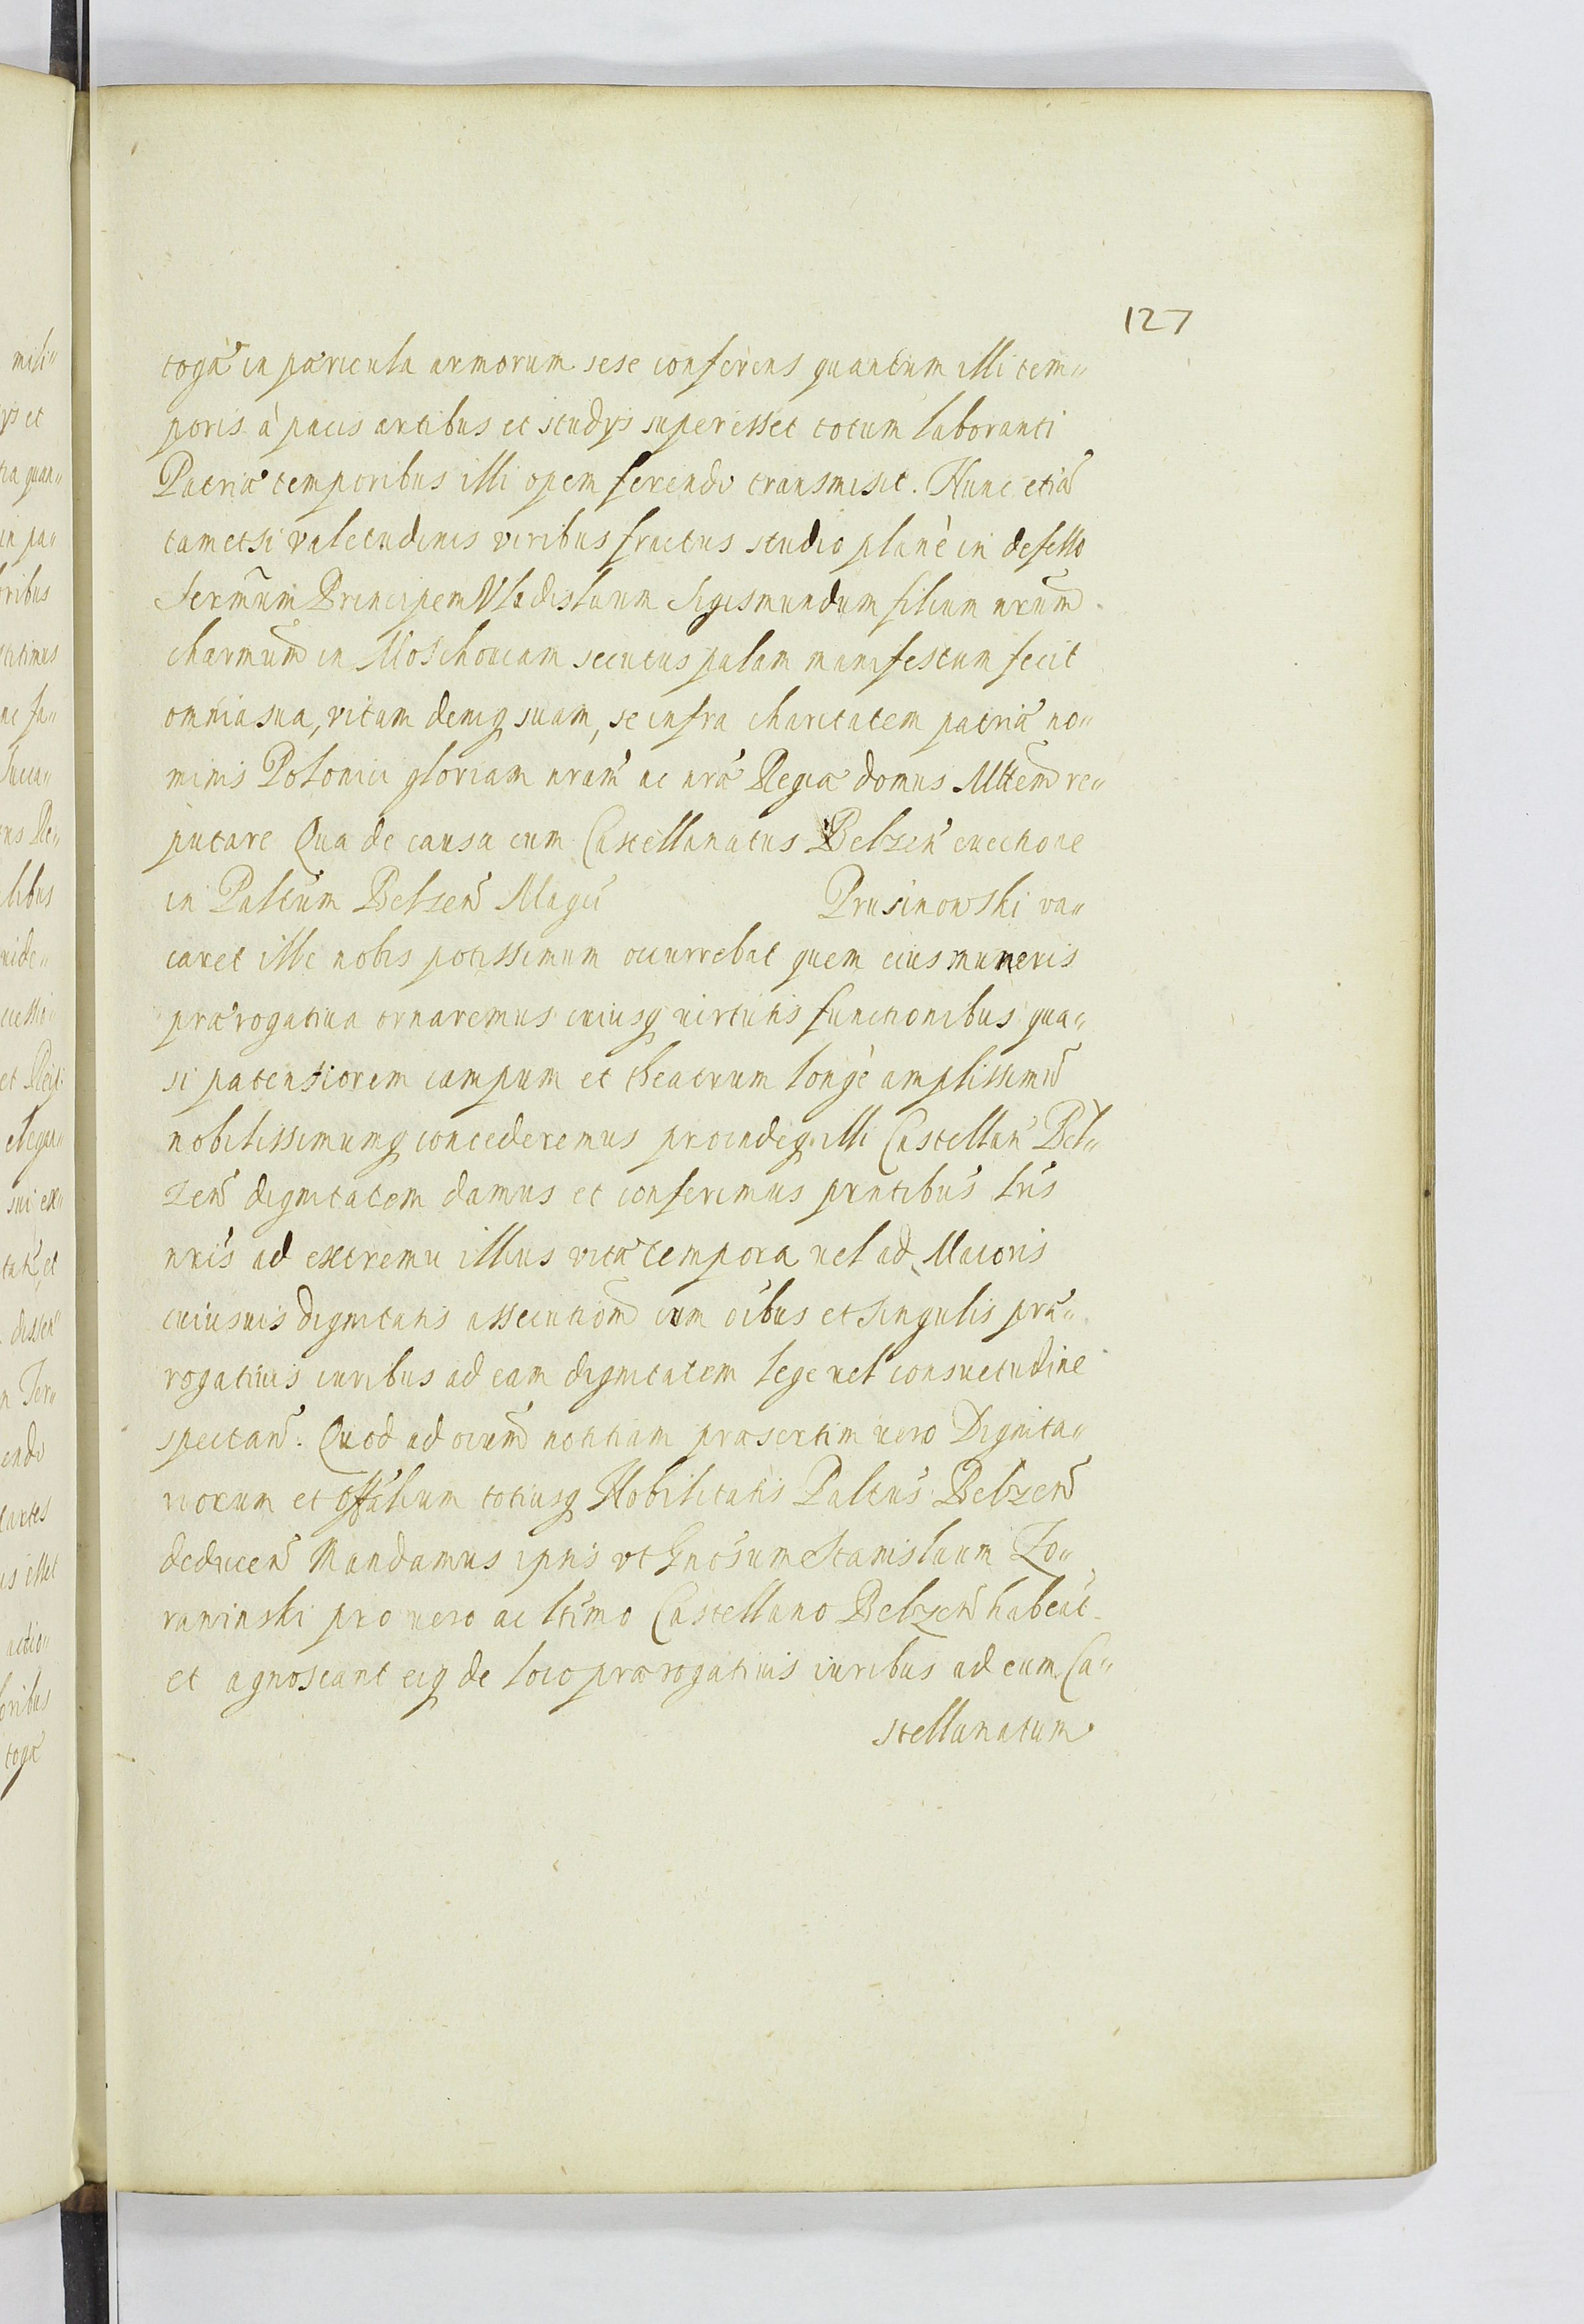 127
togæ in pæricula armorum sese conferens quantum illi tem„
poris à pacis artibus et studys superesset totum laboranti
Patriæ temporibus illi opem ferendo transmisit. Nunc etiã
tametsi valetudinis viribus fractus studio planè in defesso
Sermũm Principem Vladislaum Sigismundum filium nrũm
charmũm in Moschouiam secutus palam manifestum fecit
omnia sua, vitam deniq suam, se infra charitatem patriæ no„
minis Polonici gloriam nram̃ ac nræ̃ Regiæ domus Mttem̃ re„
putare Qua de causa cum Castellanatus Belzeñ euectione
in Paltũm Belzeñ Magci Prusinowski va„
caret ille nobis potissimum occurrebat quem eius muneris
prærogatiua ornaremus cuiusq virtutis functionibus qua„
si patentiorem campum et theatrum longè amplissimũ
nobilissimumq concederemus proindeq illi Castellañ Bel„
zeñ dignitatem damus et conferimus prntibus̃ lris̃
nris̃ ad extrema illius vitæ tempora uel ad Maioris
cuiusuis dignitatis assecutionẽ cum oĩbus et singulis præ„
rogatiuis iuribus ad eam dignitatem lege uel consuetudine
spectañ. Quod ad oium̃ notitiam præsertim uero Dignita„
riorum et Offalium totiusq Nobilitatis Paltus̃ Belzeñ
deducen̄ Mandamus ipñis vt Gnosum Stanislaum Zo„
rawinski pro uero ac ltĩmo Castellano Belzeñ habeãt
et agnoscant eiq de loco prærogatiuis iuribus ad eum Ca„
stellanatum
mili„
ys et
tia quan„
in pa„
oribus
ac fa„
libus
uide„
et
endo
lartes
actio„
toga